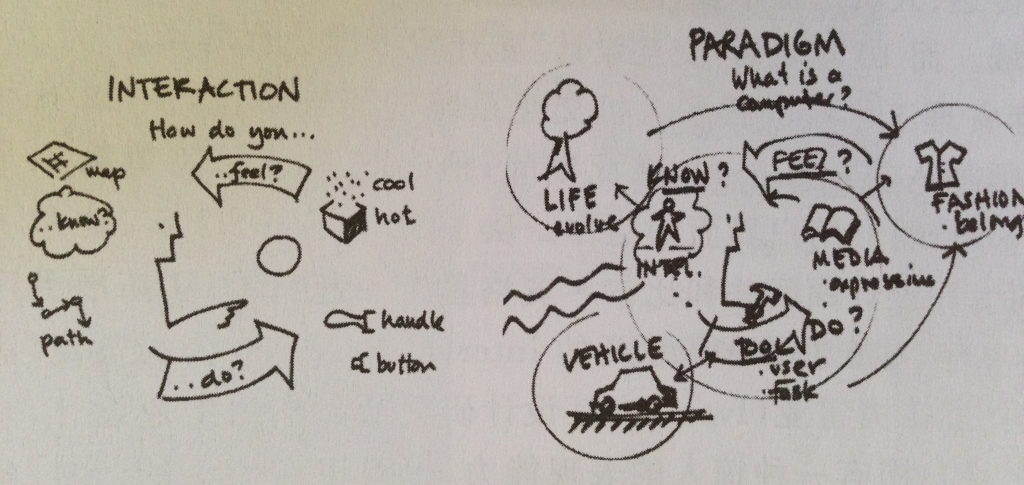 INTERACTION
How do you...
..feel?
map
..know?
path
cool
hot
handle
button
..do?
PARADIGM
What is a
computer?
LIFE
evolve
KNOW?
INTEL.
FEEL?
MEDIA
expressive
FASHION
belong
DO?
TOOL
user
task
VEHICLE